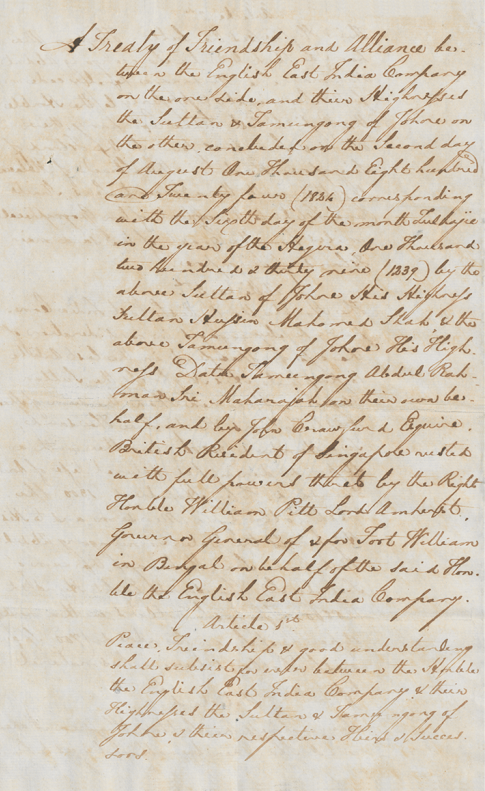 A Treaty of Friendship and Alliance be-
tween the English East India Company
on the one side, and their Highnesses
the Sultan & Tamungong of Johore on
the other, concluded on the Second day
of August One Thousand Eight hundred
and Twenty four (1824) corresponding
with the Sixth day of the month Zulhajie
in the year of the Hegira, One Thousand
two Hundred & thirty nine (1239) by the
above Sultan of Johore His Highness
Sultan Hussin Mahomed Shah & the
above Tamungong of Johore His High-
ness Datu Tamungong Abdul Rah-
man Sri Maharajah on their own be-
half, and by John Crawfurd Esquire.
British Resident of Singapore vested
with full powers thereto by the Right
Honble William Pitt Lord Amherst,
Governor General of & for Fort William
in Bengal on behalf of the said Hon-
ble the English East India Company.
Article 1st
Peace, Friendship & good understanding
shall subsist for ever between the Honble
the English East India Company & their
Highnesses the Sultan & Tamungong of
Johore & their respective Heirs & Succes-
sors.